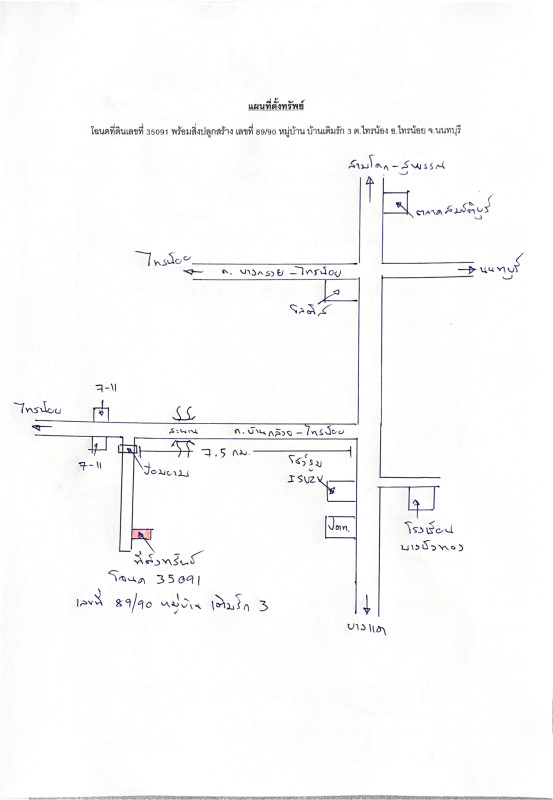 แผนที่ตั้งทรัพย์
โฉนดที่ดินเลขที่ 35091 พร้อมสิ่งปลูกสร้าง เลขที่ 89/90 หมู่บ้าน บ้านเติมรัก 3 ต.ไทรน้อง อ.ไทรน้อย จ.นนทบุรี
สามโคก - สุพรรณ
ตลาดสมบัติบุรี
ไทรน้อย
ถ. บางกรวย - ไทรน้อย
นนทบุรี
โลตัส
7-11
ไทรน้อย
สะพาน
ถ.บ้านกล้วย - ไทรน้อย
7-11
ป้อมยาม
7.5 กม.
โชว์รูม
ISUZU
ปตท.
โรงเรียน
บางบัวทอง
ที่ตั้งทรัพย์
โฉนด 35091
เลขที่ 89/90 หมู่บ้าน เติมรัก 3
บางแค